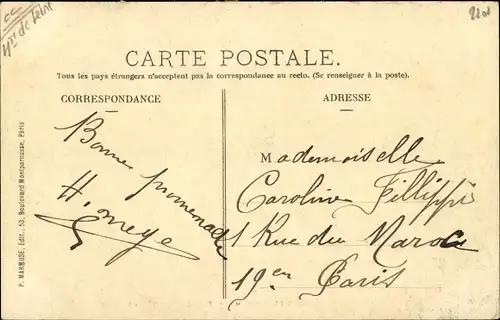 CARTE POSTALE.
Tous les pays étrangers n'acceptent pas la correspondance au recto. (Se renseigner à la poste).
CORRESPONDANCE
ADRESSE
Bonne promenade
H.
Mademoiselle
Caroline Fillippi
1 Rue du Maroc
19en Paris
P. MARMUSE, Edit., 53, Boulevard Montparnasse, Paris